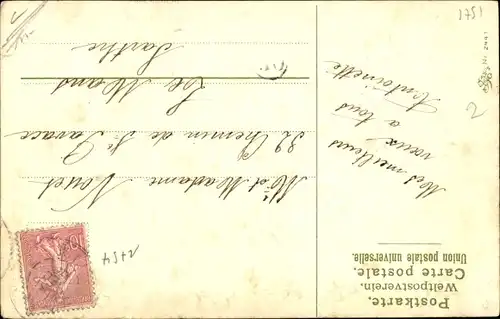 Postkarte.
Weltpostverein.
Carte postale.
Union postale universelle.
Mes meilleurs
vœux
a tous
Antoinette
Mr et Madame Nouet
32 Chemin de St Pavace
Le Mans
Sarthe
3751
2